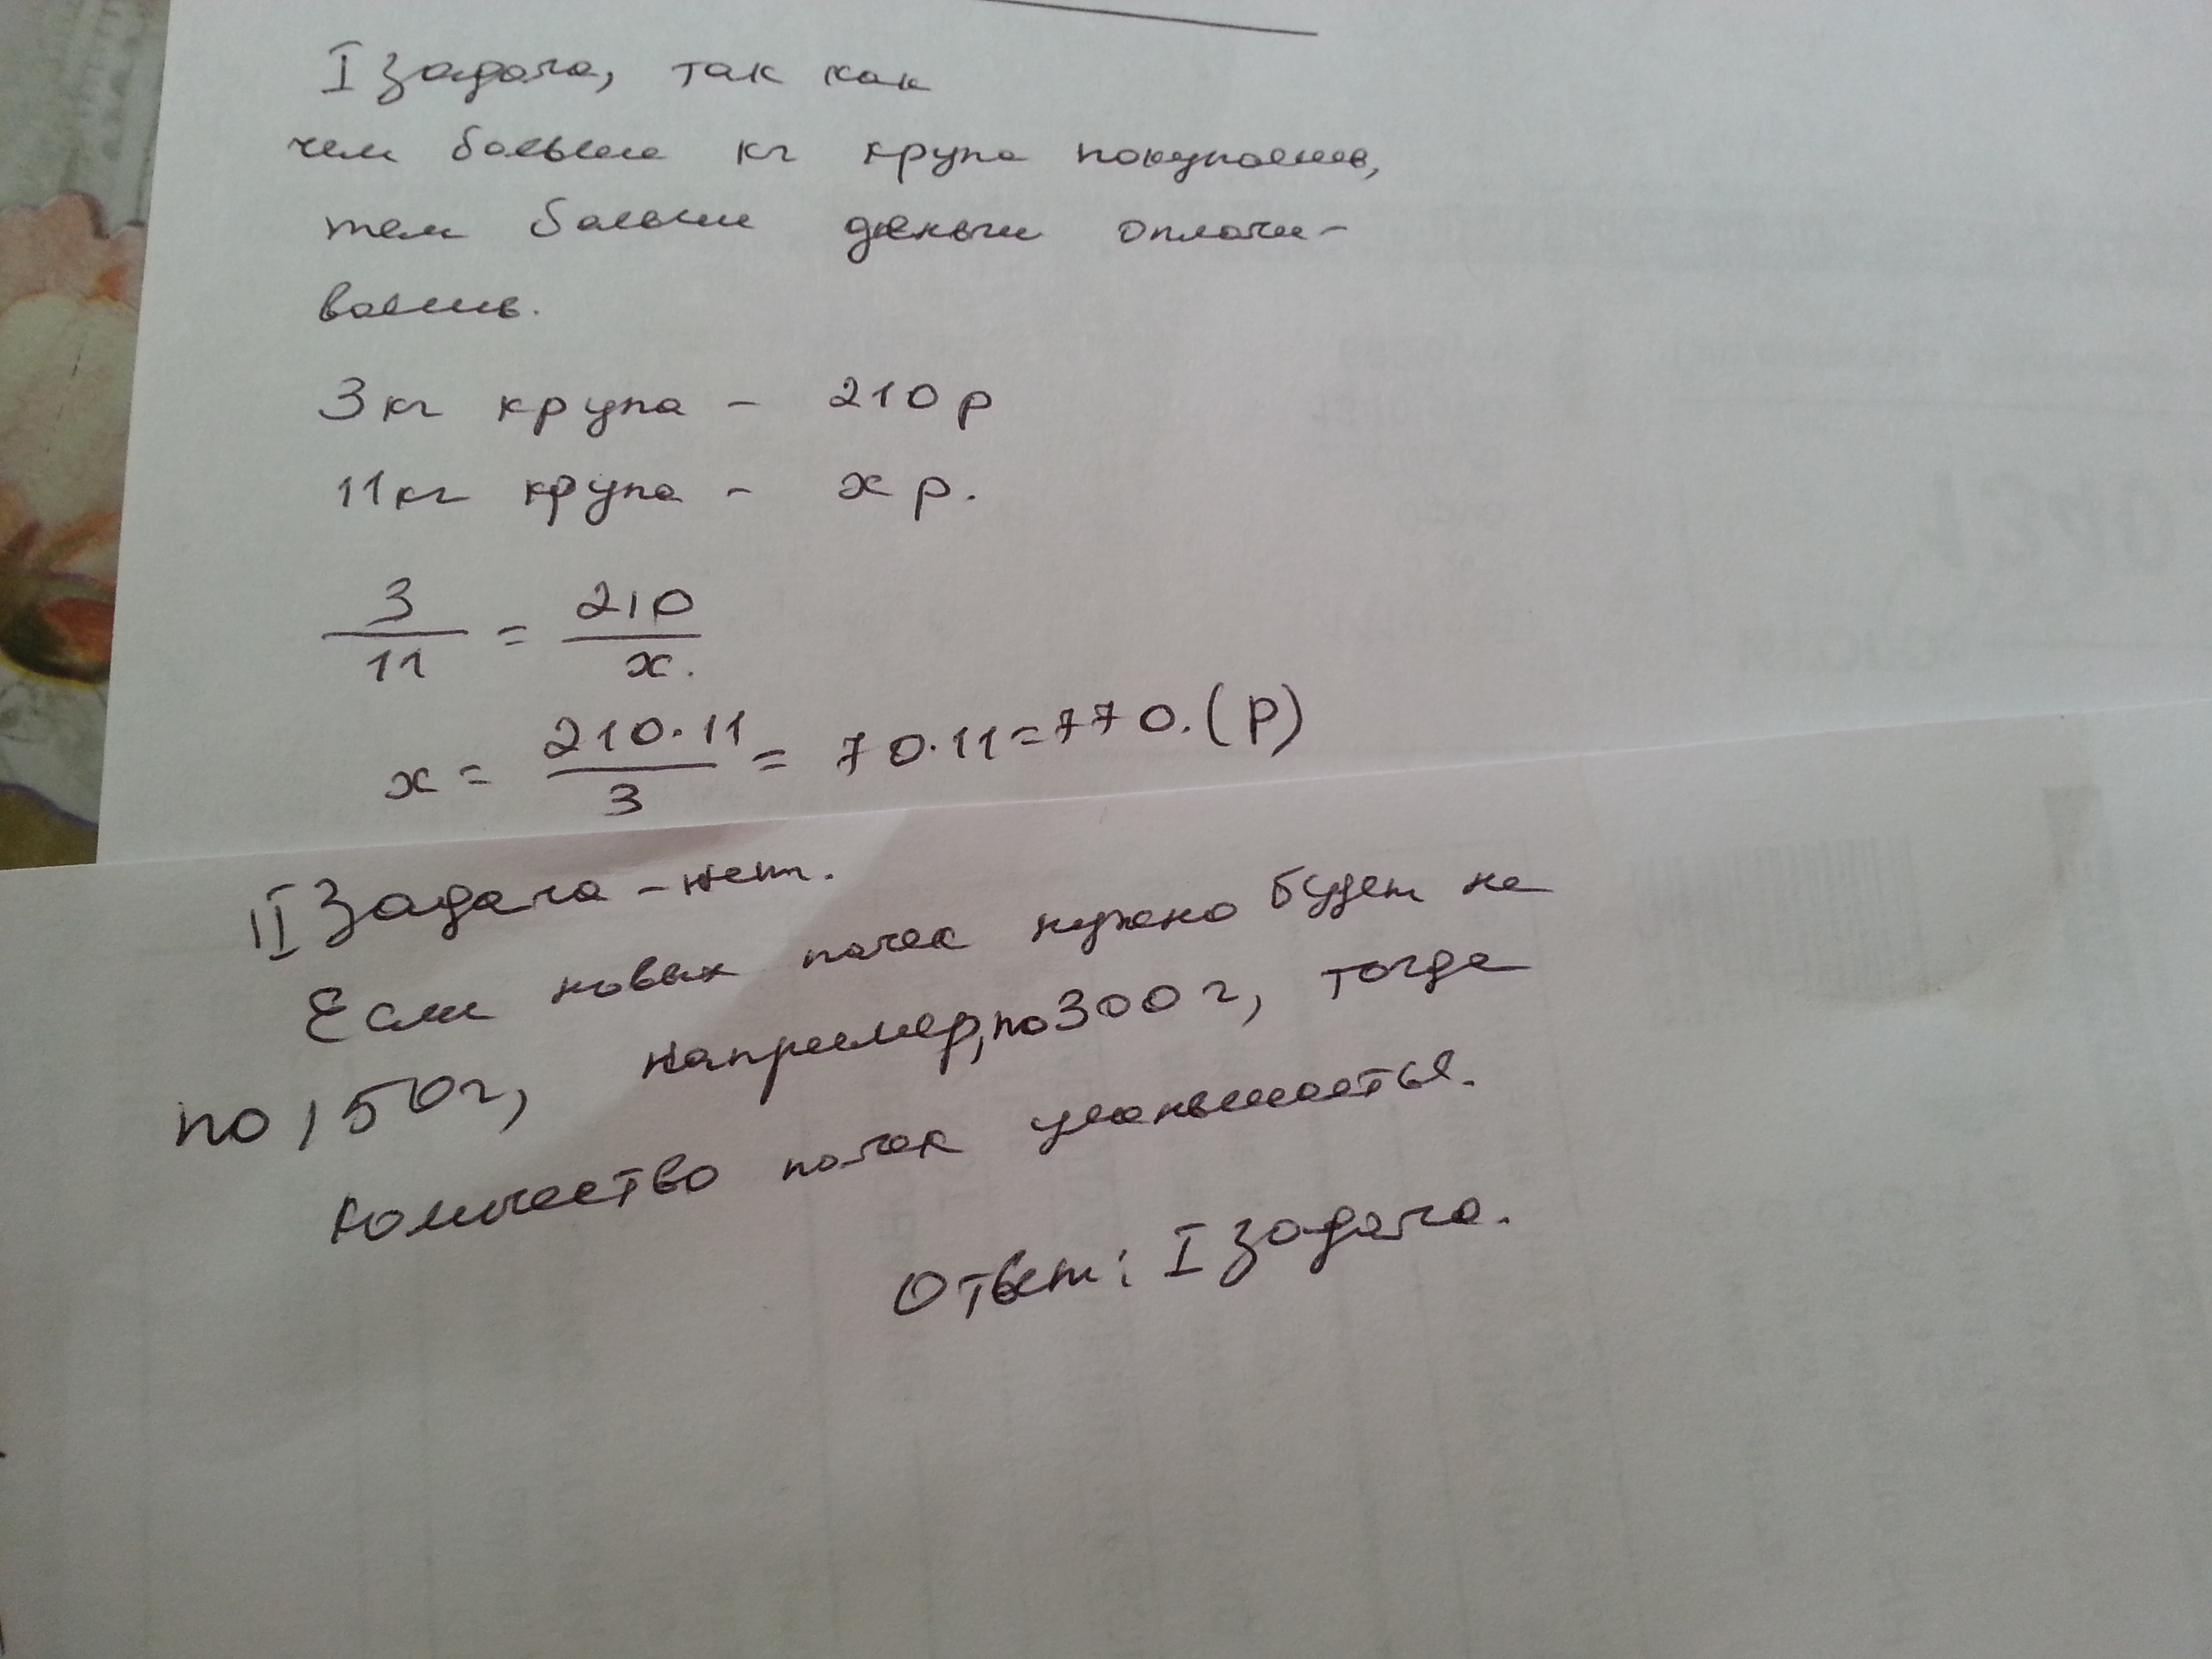 I задача, так как
чем больше кг крупа покупаешь,
тем больше деньги оплачи-
ваешь.
3кг крупа - 210р
11кг крупа - x р.
3/11 = 210/x.
x = 210·11/3 = 70·11=770.(р)
II Задача - нет.
Если новых пачек нужно будет не
по 150г, например, по 300г, тогда
количество пачек уменьшаеться.
Ответ: I задача.